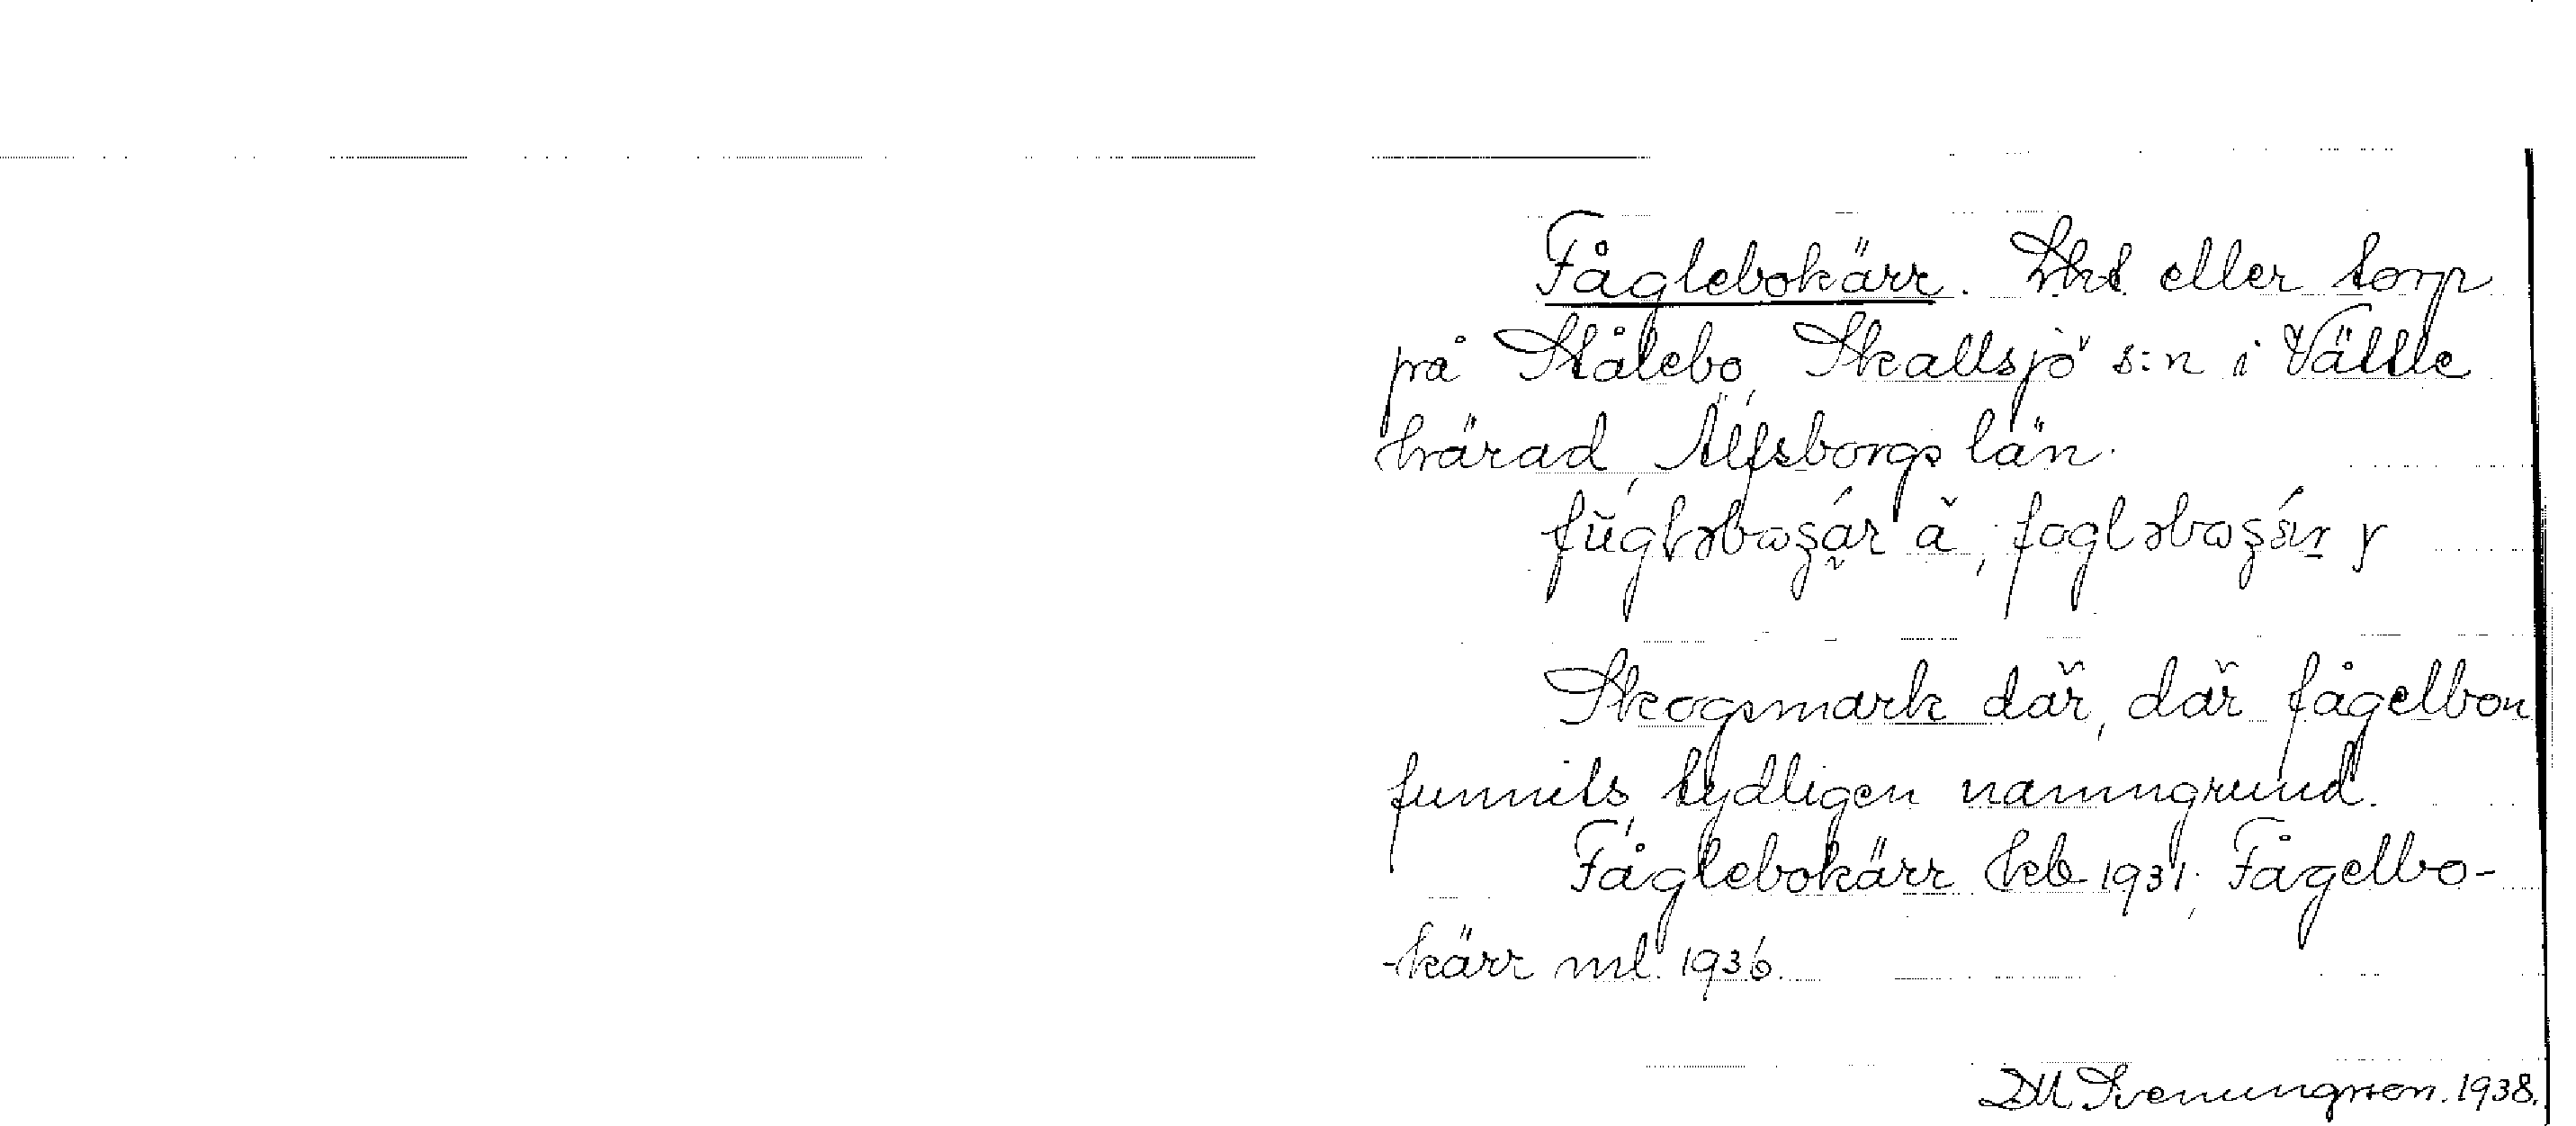 Fåglebokärr. Lht eller torp
på Stålebo, Skallsjö s:n i Vättle
härad, Älfsborgs län.
Skogsmark där, där fågelbon
funnits, tydligen namngrund.
Fåglebokärr hkb 1931; Fågelbo-
-kärr ml. 1936.
DM. Svenungsson. 1938.